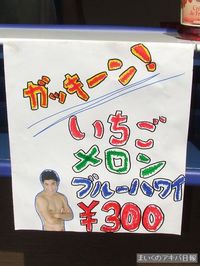 ガッキーン!
いちご
メロン
ブルーハワイ
¥300
まいくのアキバ日報